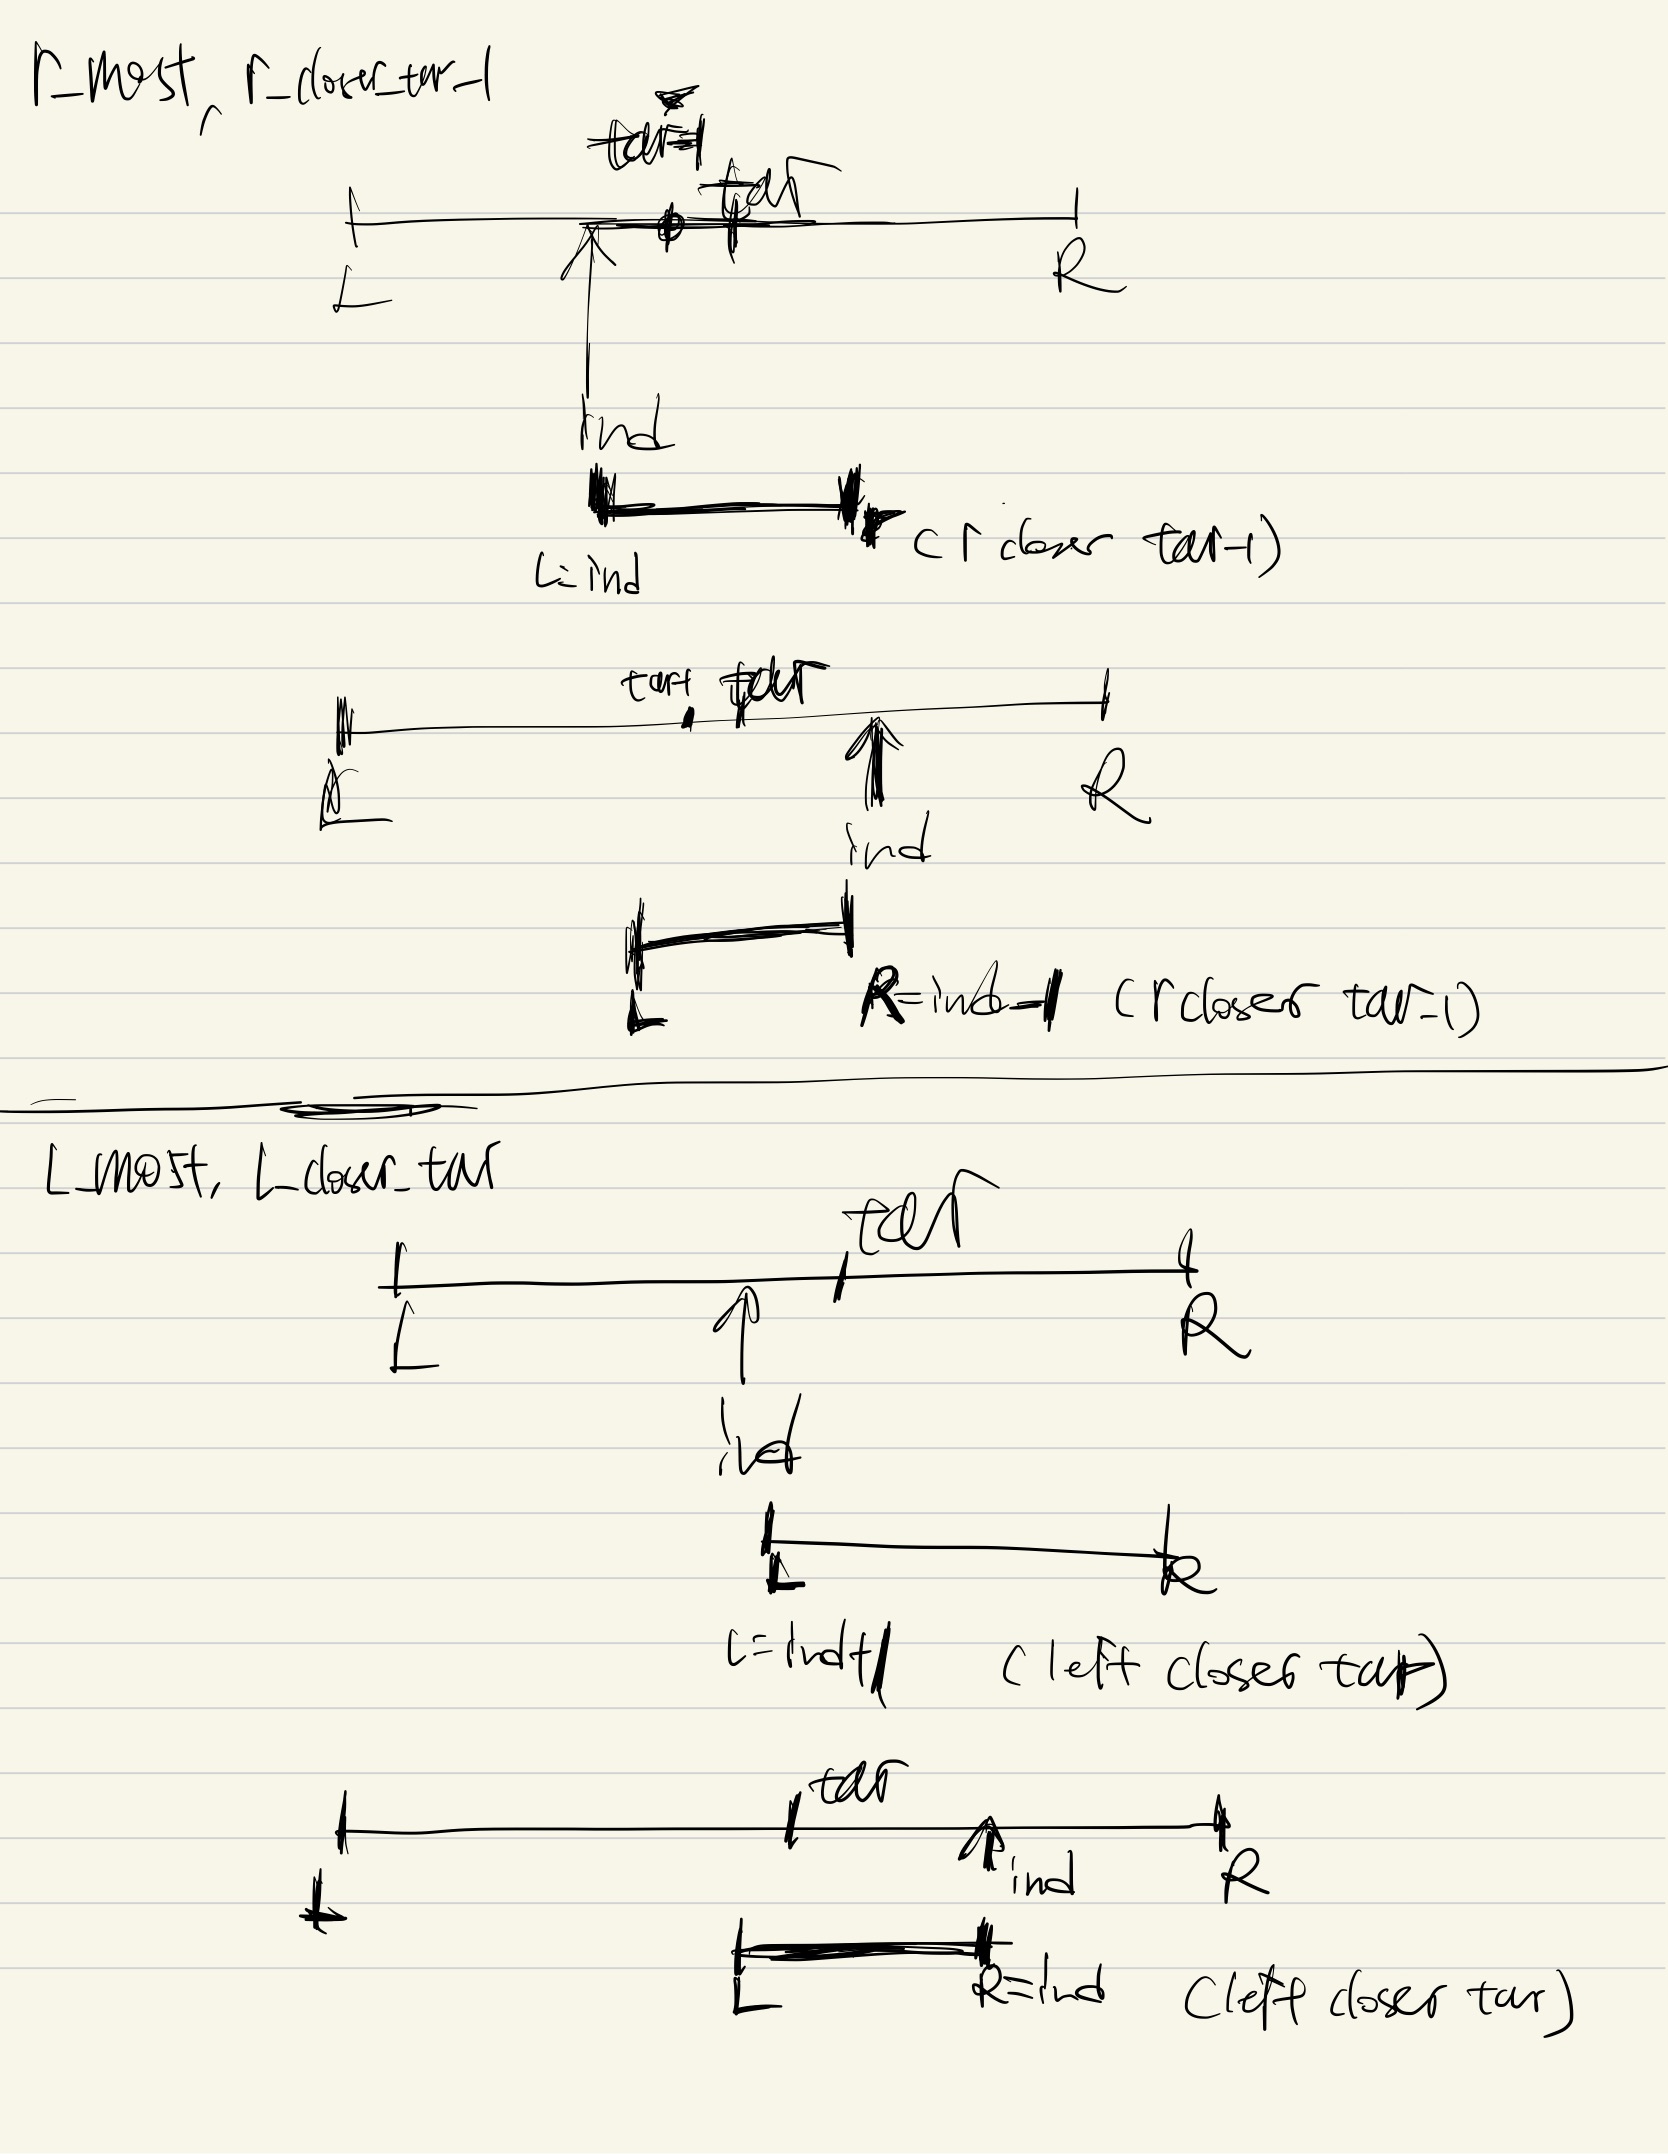 r_most, r_closer_tar-1
tar-1
tar
L R
ind
L=ind r (r closer tar-1)
tar-1 tar
L R
ind
L R=ind-1 (r closer tar-1)
L_most, L_closer_tar
tar
L R
ind
L R
L=ind+1 (left closer tar)
tar
L ind R
L R=ind (left closer tar)